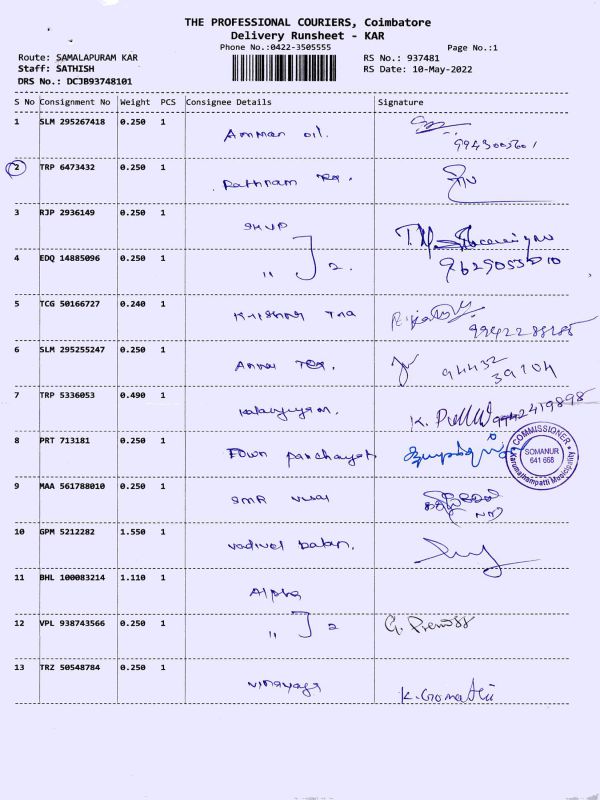 THE PROFESSIONAL COURIERS, Coimbatore
Delivery Runsheet - KAR
Phone No.:0422-3505555
Page No.:1
Route: SAMALAPURAM KAR
RS No.: 937481
Staff: SATHISH
RS Date: 10-May-2022
DRS No.: DCJB93748101
S No Consignment No Weight PCS Consignee Details Signature
1 SLM 295267418 0.250 1 Amman oil.
2 TRP 6473432 0.250 1 Rathnam Tex.
3 RJP 2936149 0.250 1 SKVP
4 EDQ 14885096 0.250 1 " 2.
5 TCG 50166727 0.240 1
6 SLM 295255247 0.250 1 Annai Tex. 94432
39104
7 TRP 5336053 0.490 1 K.
8 PRT 713181 0.250 1 Town panchayat
COMMISSIONER
SOMANUR
641 668
Karumathampatti Municipality
9 MAA 561788010 0.250 1 SMR
10 GPM 5212282 1.550 1 vadivel
11 BHL 100083214 1.110 1 Alpha
12 VPL 938743566 0.250 1 " 2 G.
13 TRZ 50548784 0.250 1 vinayaga K. Gomathi